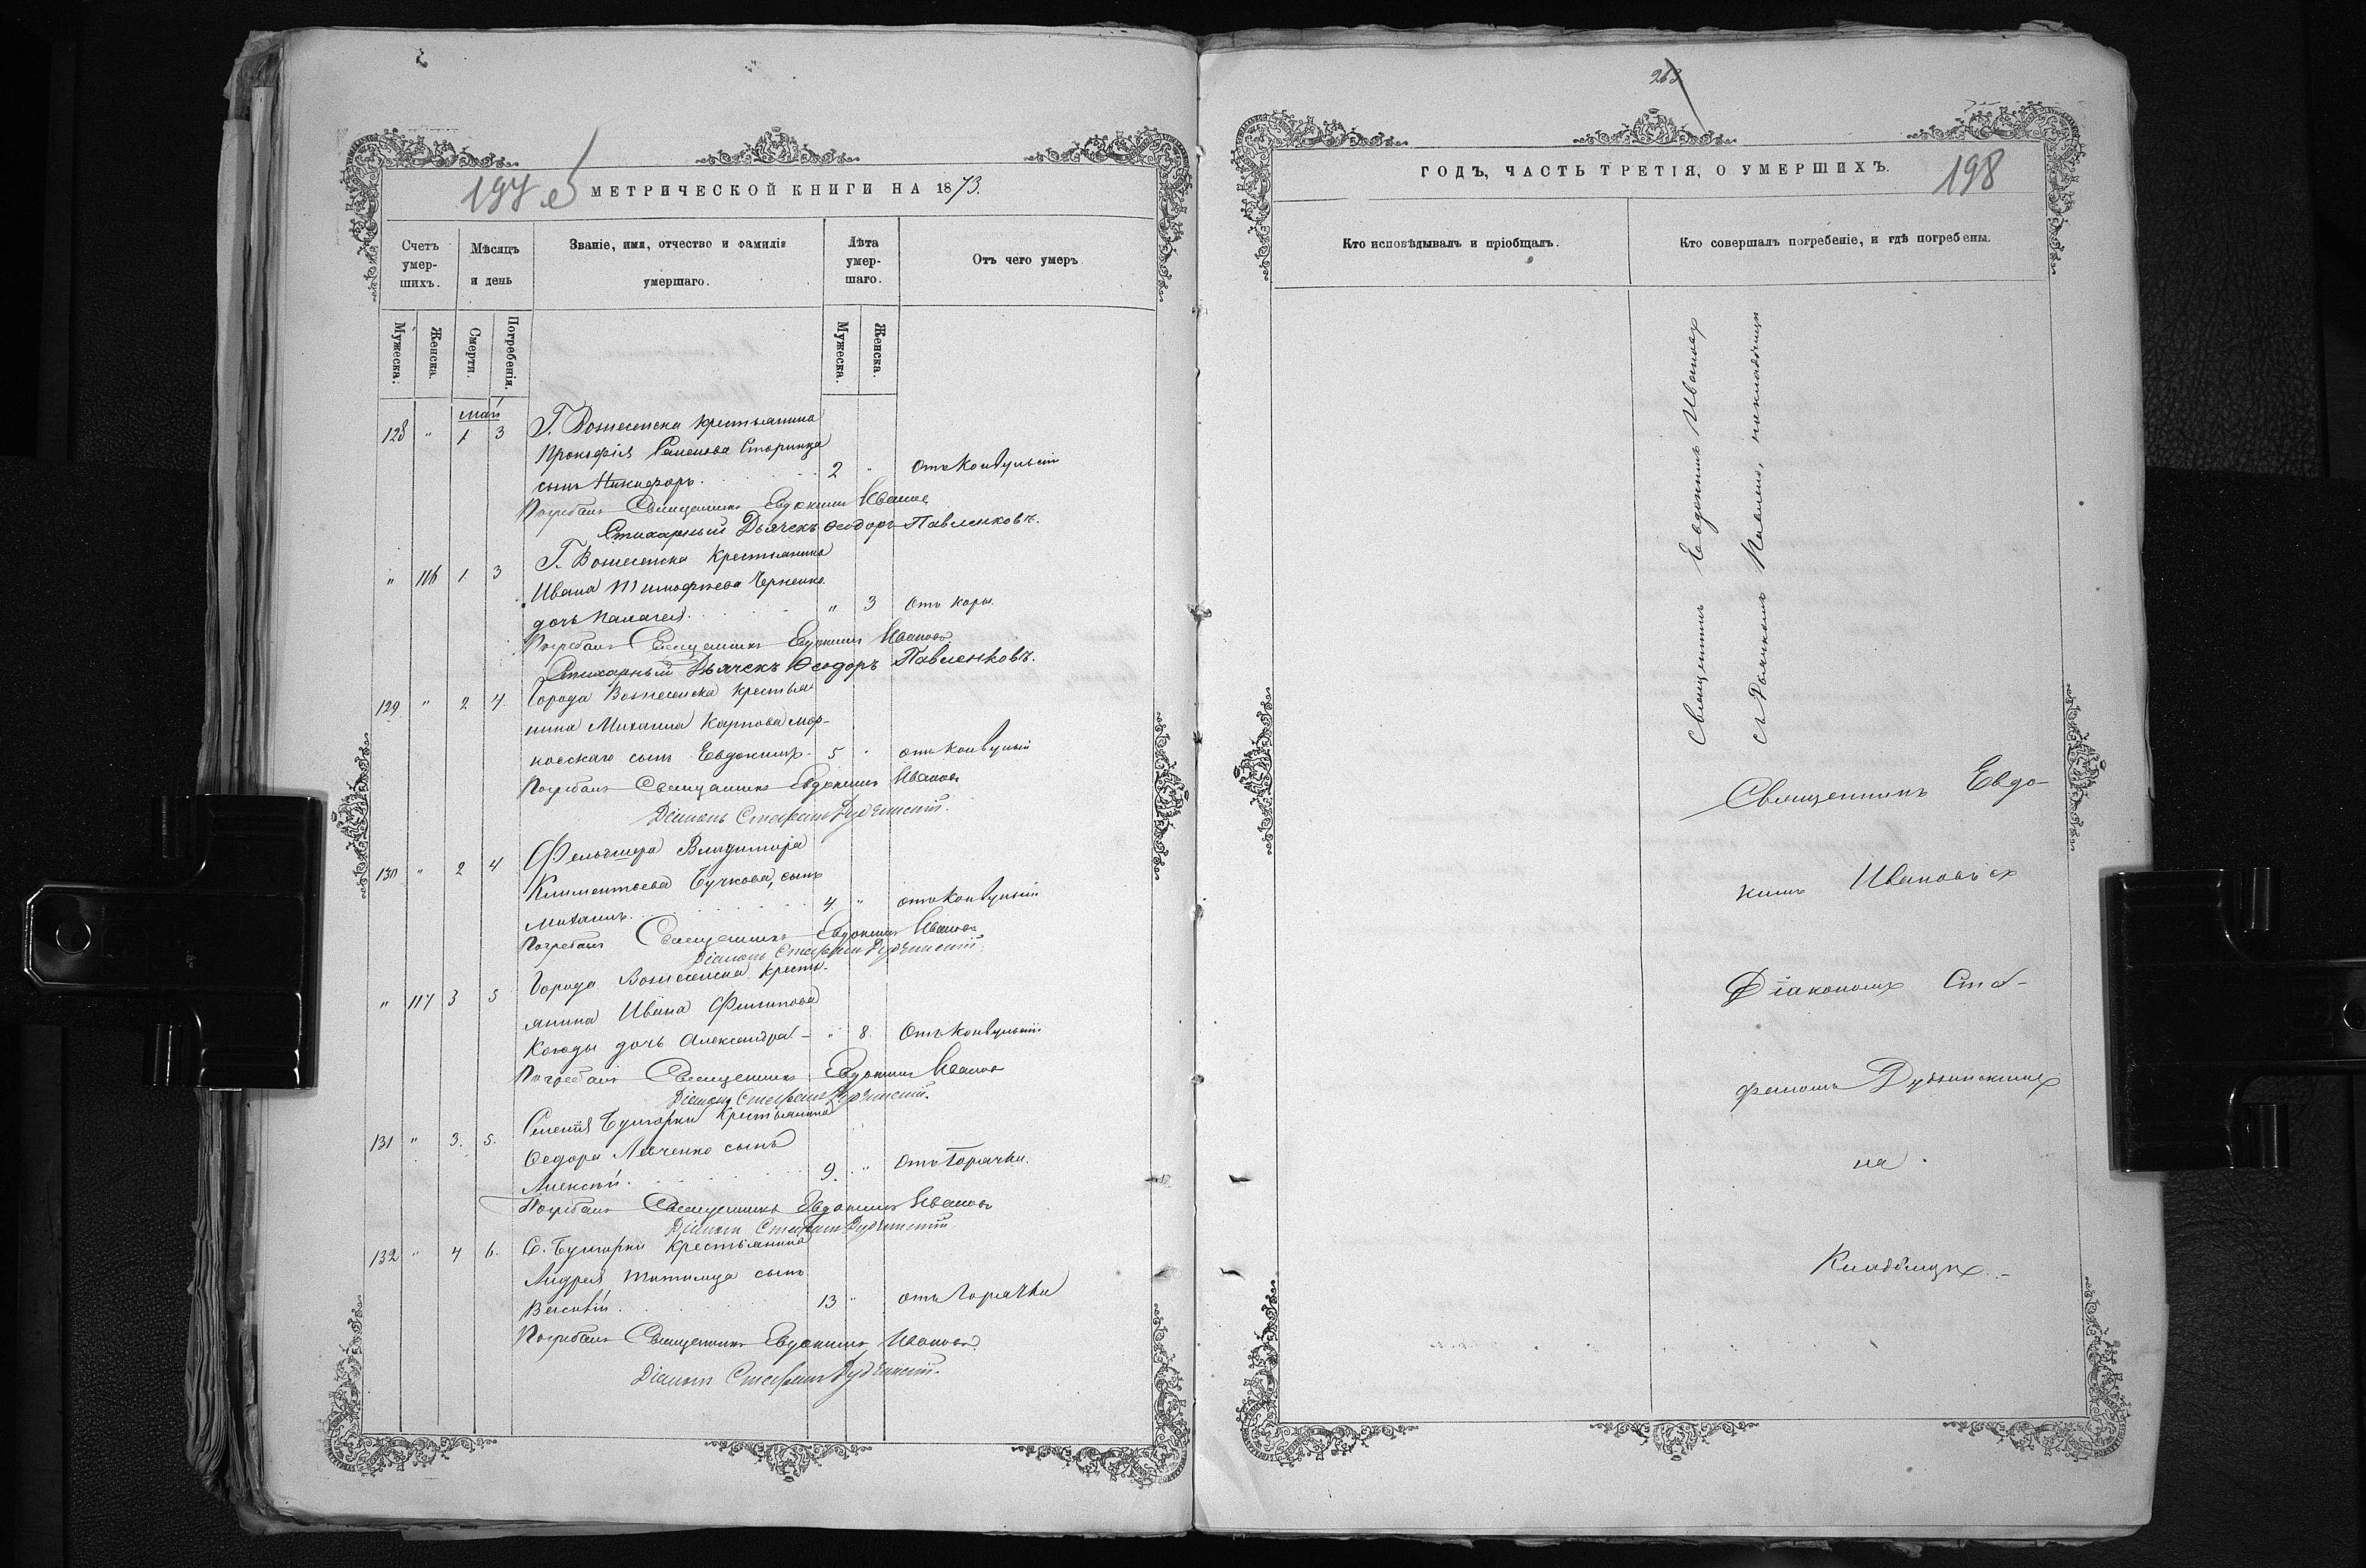 197 об
МЕТРИЧЕСКОЙ КНИГИ НА 1873.
Счетъ умер-шихъ.
Мѣсяцъ и день
Званіе, имя, отчество и фамилія умершаго.
Лѣта умер-шаго.
Отъ чего умеръ
Мужеска.
Женска.
Смерти.
Погребенія.
Мужеска.
Женска.
май
128 " 1 3 Г. Вознесенска крестьянина
Прокофія Семенова
сынъ Никифоръ. 2 " Отъ Конвульсій
Погребалъ Священникъ Евдокимъ Ивановъ
Стихарный Дьячекъ Ѳеодоръ Павленковъ.
" 116 1 3 Г. Вознесенска Крестьянина
Ивана Тимофѣева Черненко
дочь Палагея. " 3 Отъ Кори.
Погребалъ Священникъ Евдокимъ Ивановъ.
Стихарный Дьячекъ Ѳеодоръ Павленковъ.
129 " 2 4 Города Вознесенска крестья
нина Михаила Карпова Мар-
ковскаго сынъ Евдокимъ. 5 " отъ Конвульсій
Погребалъ Священникъ Евдокимъ Ивановъ
Діаконъ Стефанъ Дубчинскій.
130 " 2 4 Фельдшера Владиміра
Климентьева Бучкова, сынъ
Михаилъ. 4. " отъ Конвульсій
Погребалъ Священникъ Евдокимъ Ивановъ
Діаконъ Стефанъ Дубчинскій.
" 117 3 5 Города Вознесенска кресть-
янина Ивана Филипова
дочь Александра - " 8. Отъ Конвульсій
Погребалъ Священникъ Евдокимъ Ивановъ
Діаконъ Стефанъ Дубчинскій.
131 " 3. 5. Селенія Булгарки Крестьянина
Ѳедора Левченко сынъ
Алексѣй. 9. " Отъ Горячки.
Погребалъ Священникъ Евдокимъ Ивановъ
Діаконъ Стефанъ Дубчинскій
132 " 4 6. С. Булгарки Крестьянина
Андрея сынъ
13 " отъ Горячки
Погребалъ Священникъ Евдокимъ Ивановъ.
Діаконъ Стефанъ Дубчинскій.
263
ГОДЪ, ЧАСТЬ ТРЕТІЯ, О УМЕРШИХЪ.
198
Кто исповѣдывалъ и пріобщалъ.
Кто совершалъ погребеніе, и гдѣ погребены.
Священникъ Евдокимъ Ивановъ
съ Дьячкомъ на кладбищѣ
Священникъ Евдо-
кимъ Ивановъ съ
Діакономъ Сте-
фаномъ Дубчинскимъ
на
Кладбищѣ. -